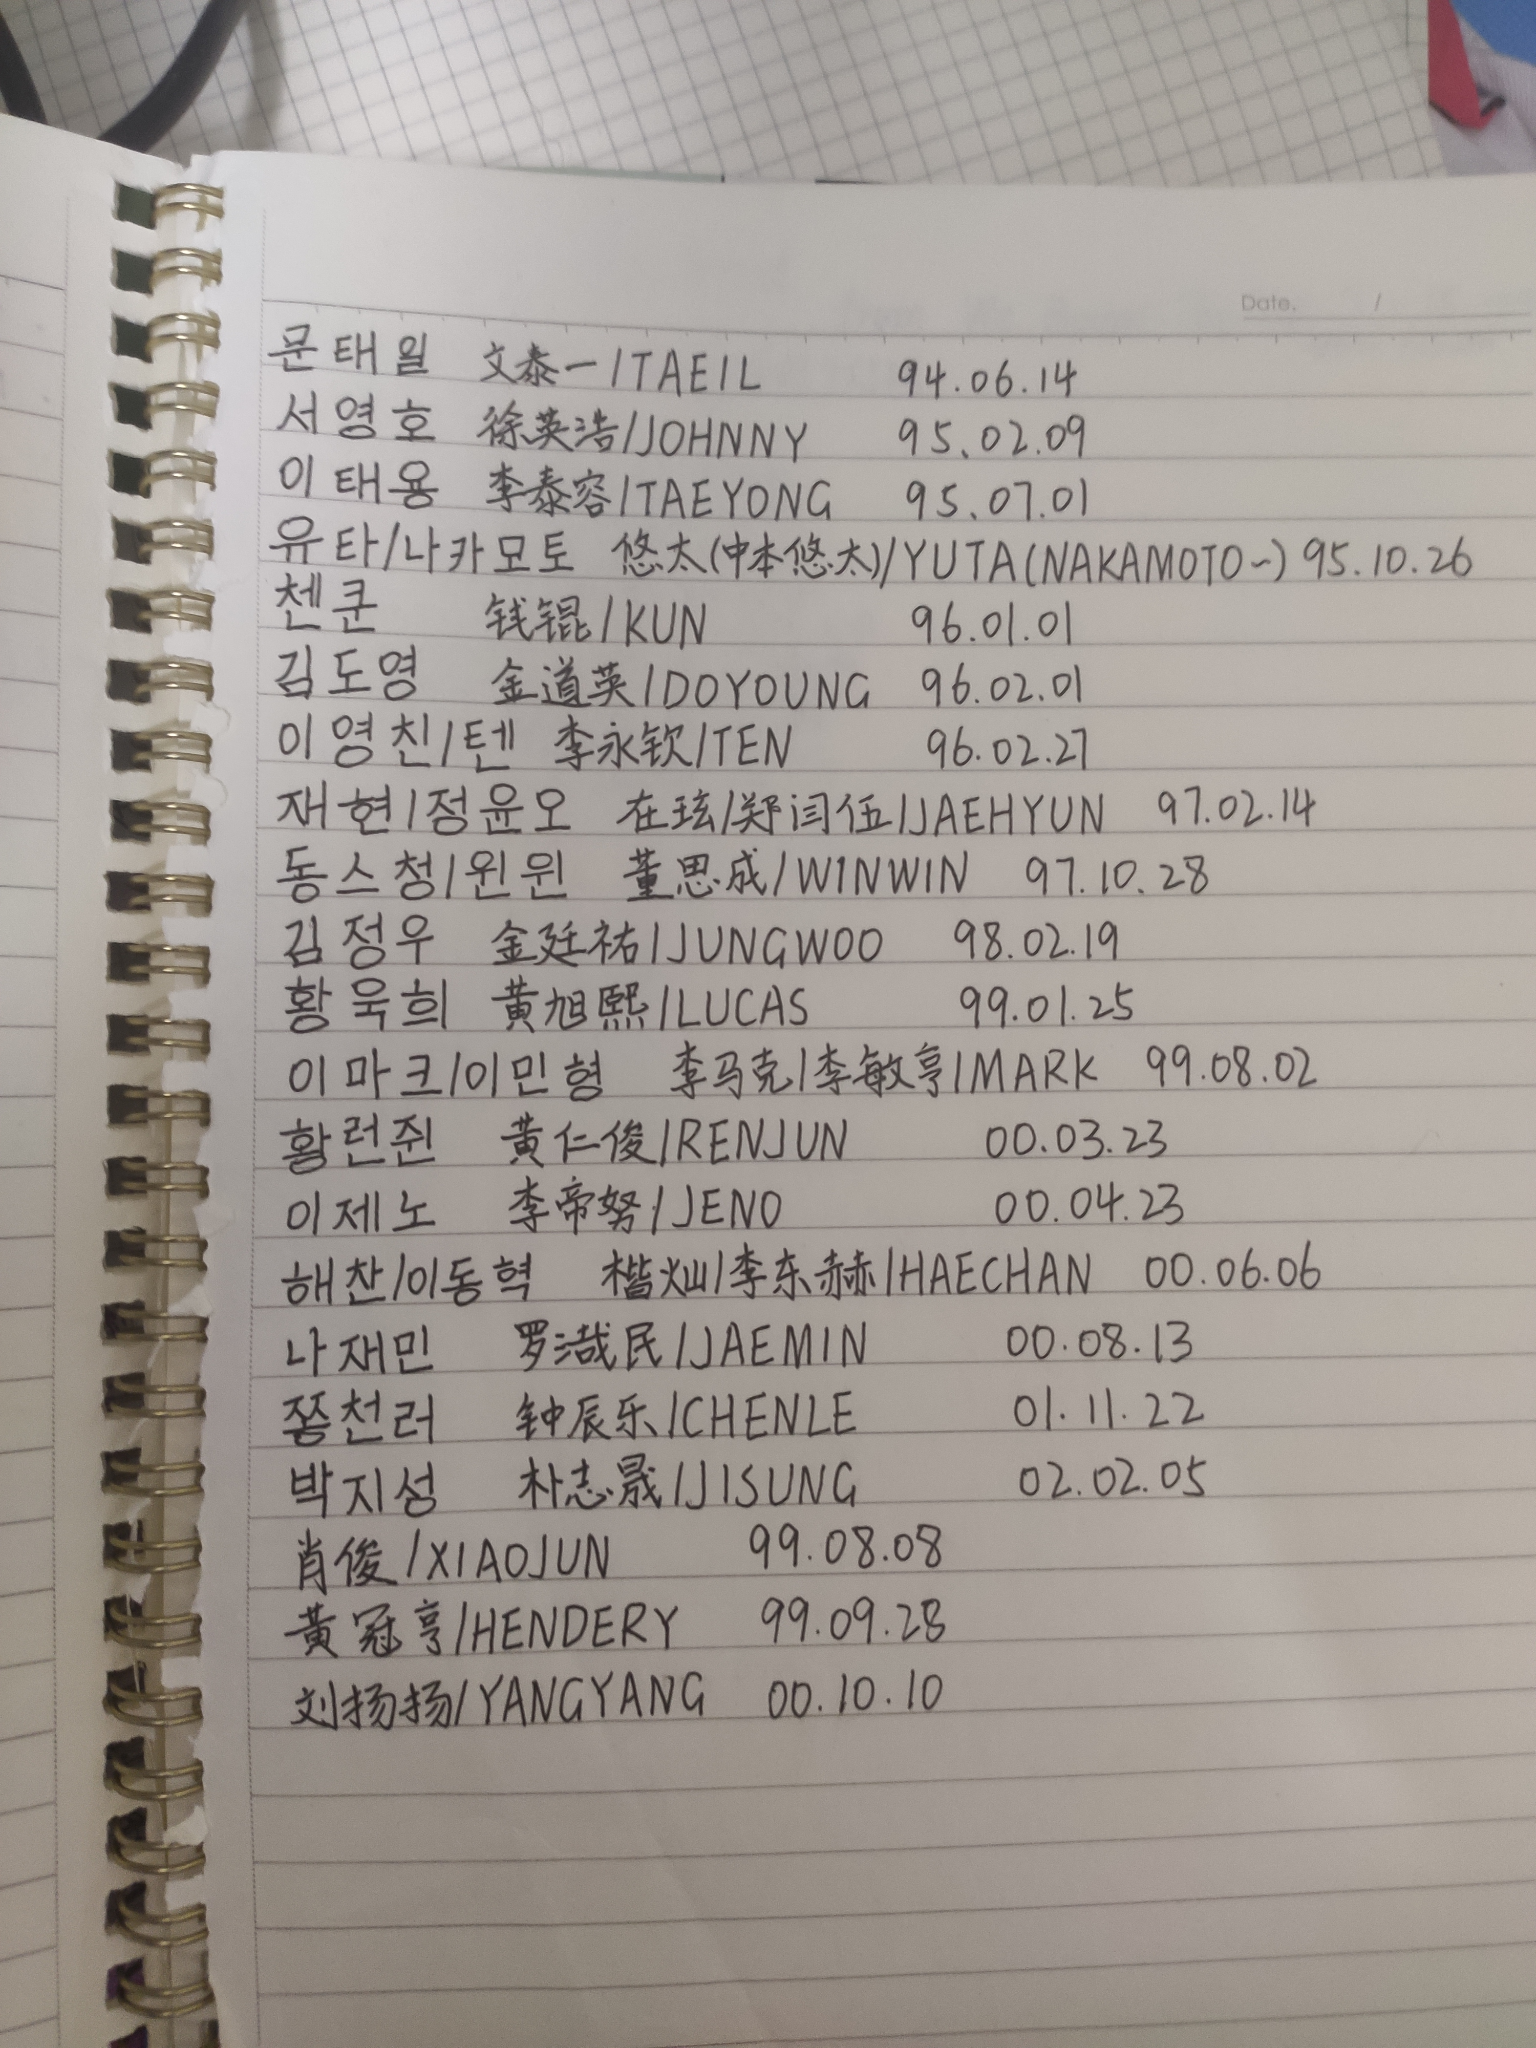 Date. /
문태일 文泰一/TAEIL 94.06.14
서영호 徐英浩/JOHNNY 95.02.09
이태용 李泰容/TAEYONG 95.07.01
유타/나카모토 悠太(中本悠太)/YUTA(NAKAMOTO~) 95.10.26
첸쿤 钱锟/KUN 96.01.01
김도영 金道英/DOYOUNG 96.02.01
이영친/텐 李永钦/TEN 96.02.27
재현/정윤오 在玹/郑闰伍/JAEHYUN 97.02.14
동스청/윈윈 董思成/WINWIN 97.10.28
김정우 金廷祐/JUNGWOO 98.02.19
황욱희 黄旭熙/LUCAS 99.01.25
이마크/이민형 李马克/李敏亨/MARK 99.08.02
황런쥔 黄仁俊/RENJUN 00.03.23
이제노 李帝努/JENO 00.04.23
해찬/이동혁 楷灿/李东赫/HAECHAN 00.06.06
나재민 罗渽民/JAEMIN 00.08.13
쫑천러 钟辰乐/CHENLE 01.11.22
박지성 朴志晟/JISUNG 02.02.05
肖俊/XIAOJUN 99.08.08
黄冠亨/HENDERY 99.09.28
刘扬扬/YANGYANG 00.10.10